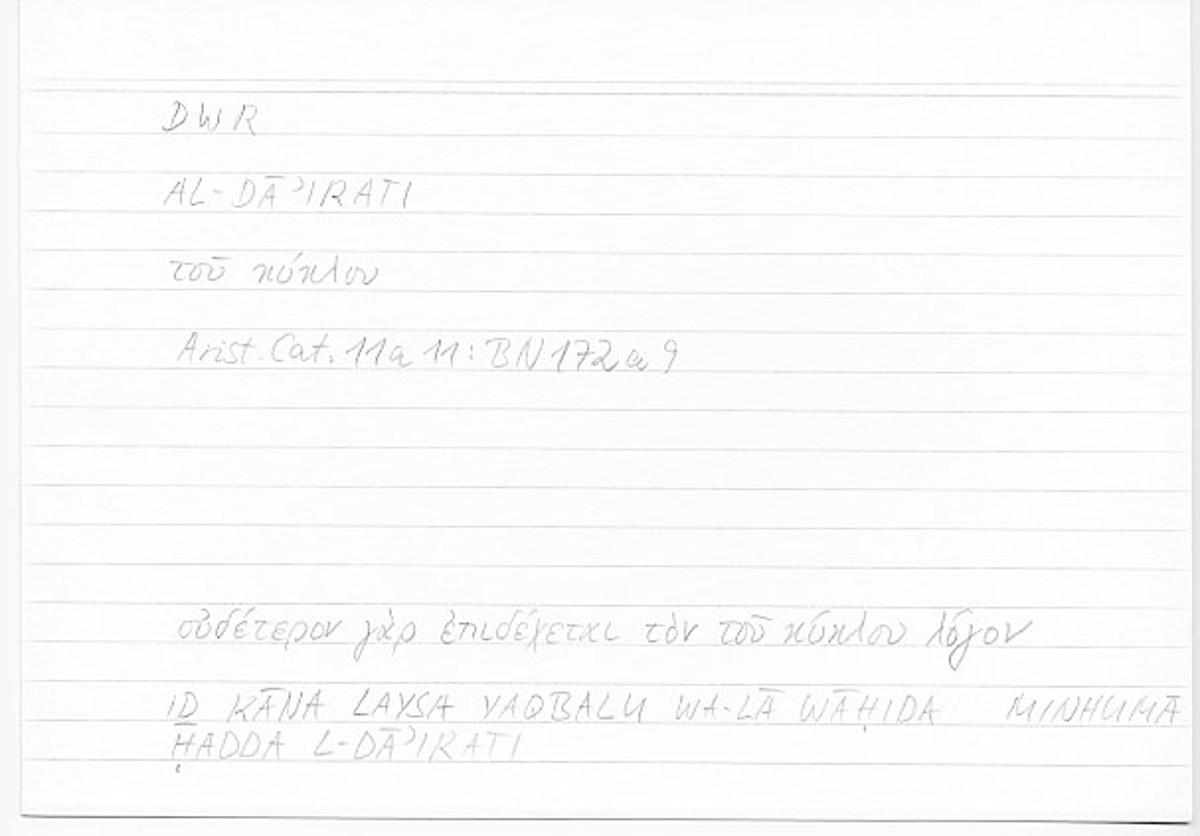 DWR
AL-DĀʾIRATI
τοῦ κύκλου
Arist. Cat. 11a 11: BN 172a 9
οὐδέτερον γὰρ ἐπιδέχεται τὸν τοῦ κύκλου λόγον
IḎ KĀNA LAYSA YAQBALU WA-LĀ WĀḤIDA MINHUMĀ
ḤADDA L-DĀʾIRATI